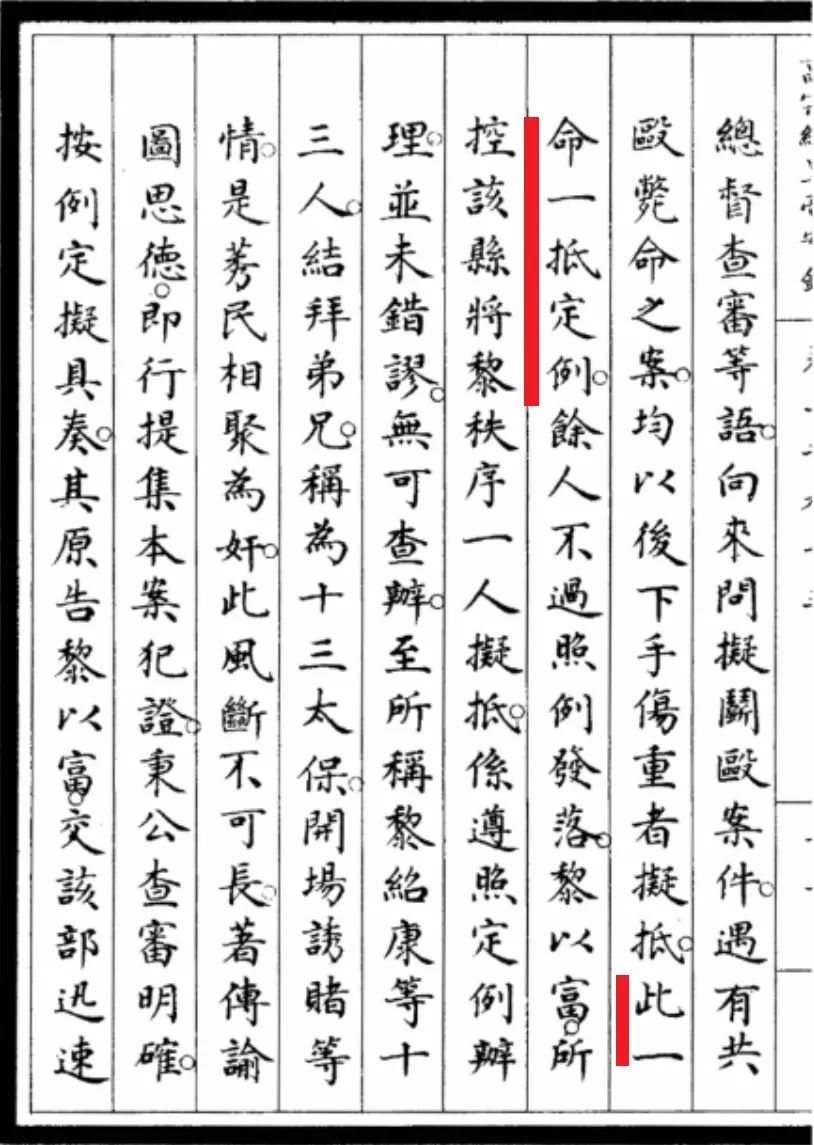 總督查審等語。向來問擬鬭毆案件。遇有共
毆斃命之案。均以後下手傷重者擬抵。此一
命一抵定例。餘人不過照例發落。黎以富。所
控該縣將黎秩序一人擬抵。係遵照定例辦
理。並未錯謬。無可查辦。至所稱黎紹康等十
三人。結拜弟兄。稱為十三太保。開場誘賭等
情。是莠民相聚為奸。此風斷不可長。著傳諭
圖思德。即行提集本案犯證。秉公查審明確。
按例定擬具奏。其原告黎以富。交該部迅速